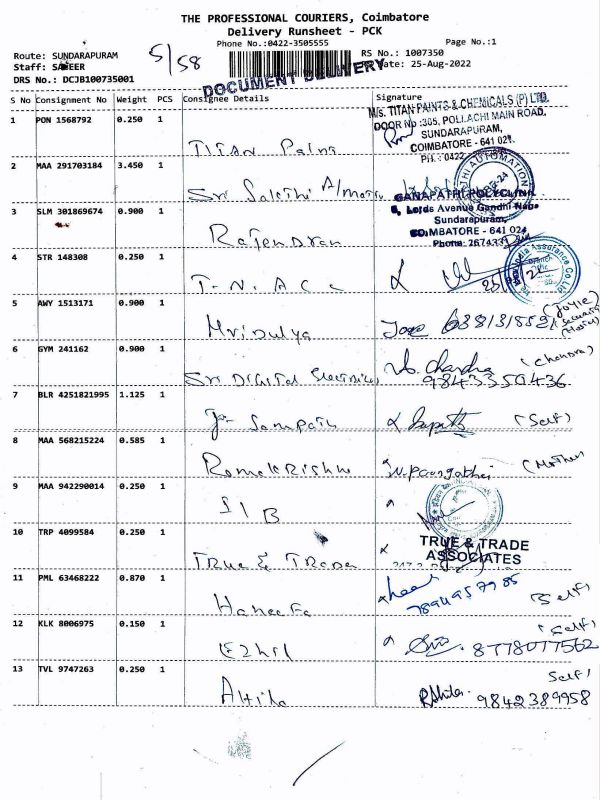 THE PROFESSIONAL COURIERS, Coimbatore
Delivery Runsheet - PCK
Phone No.:0422-3505555 Page No.:1
Route: SUNDARAPURAM 5/58 RS No.: 1007350
Staff: SAFEER Date: 25-Aug-2022
DRS No.: DCJB100735001 DOCUMENT DELIVERY
S No Consignment No Weight PCS Consignee Details Signature
M/s. TITAN PAINTS & CHEMICALS (P) LTD.
1 PON 1568792 0.250 1
DOOR No :305, POLLACHI MAIN ROAD,
SUNDARAPURAM,
COIMBATORE - 641 024.
TITAN Paint PH.: 0422
2 MAA 291703184 3.450 1
Sri Sakthi
GANAPATHI POLYCLINIC
3 SLM 301869674 0.900 1
Lords Avenue Gandhi Nagar
Sundarapuram,
COIMBATORE - 641 024
Rajendran Phone: 2674331
4 STR 148308 0.250 1
T.N.A.C.C 25/8/22
5 AWY 1513171 0.900 1
Mridulya 6381318552 (Joyie Security
6 GYM 241162 0.900 1
Sri DIGITAL Electronics Chandra 9843350436 (Chandra)
7 BLR 4251821995 1.125 1
Sampath (Self)
8 MAA 568215224 0.585 1
Ramakrishna (Mother
9 MAA 942290014 0.250 1
SIB
10 TRP 4099584 0.250 1
TRUE & TRADE
ASSOCIATES
True & Trade
11 PML 63468222 0.870 1
Haneefa Self)
12 KLK 8006975 0.150 1
Ezhil 8778077562 (Self)
13 TVL 9747263 0.250 1
Self)
9842389958